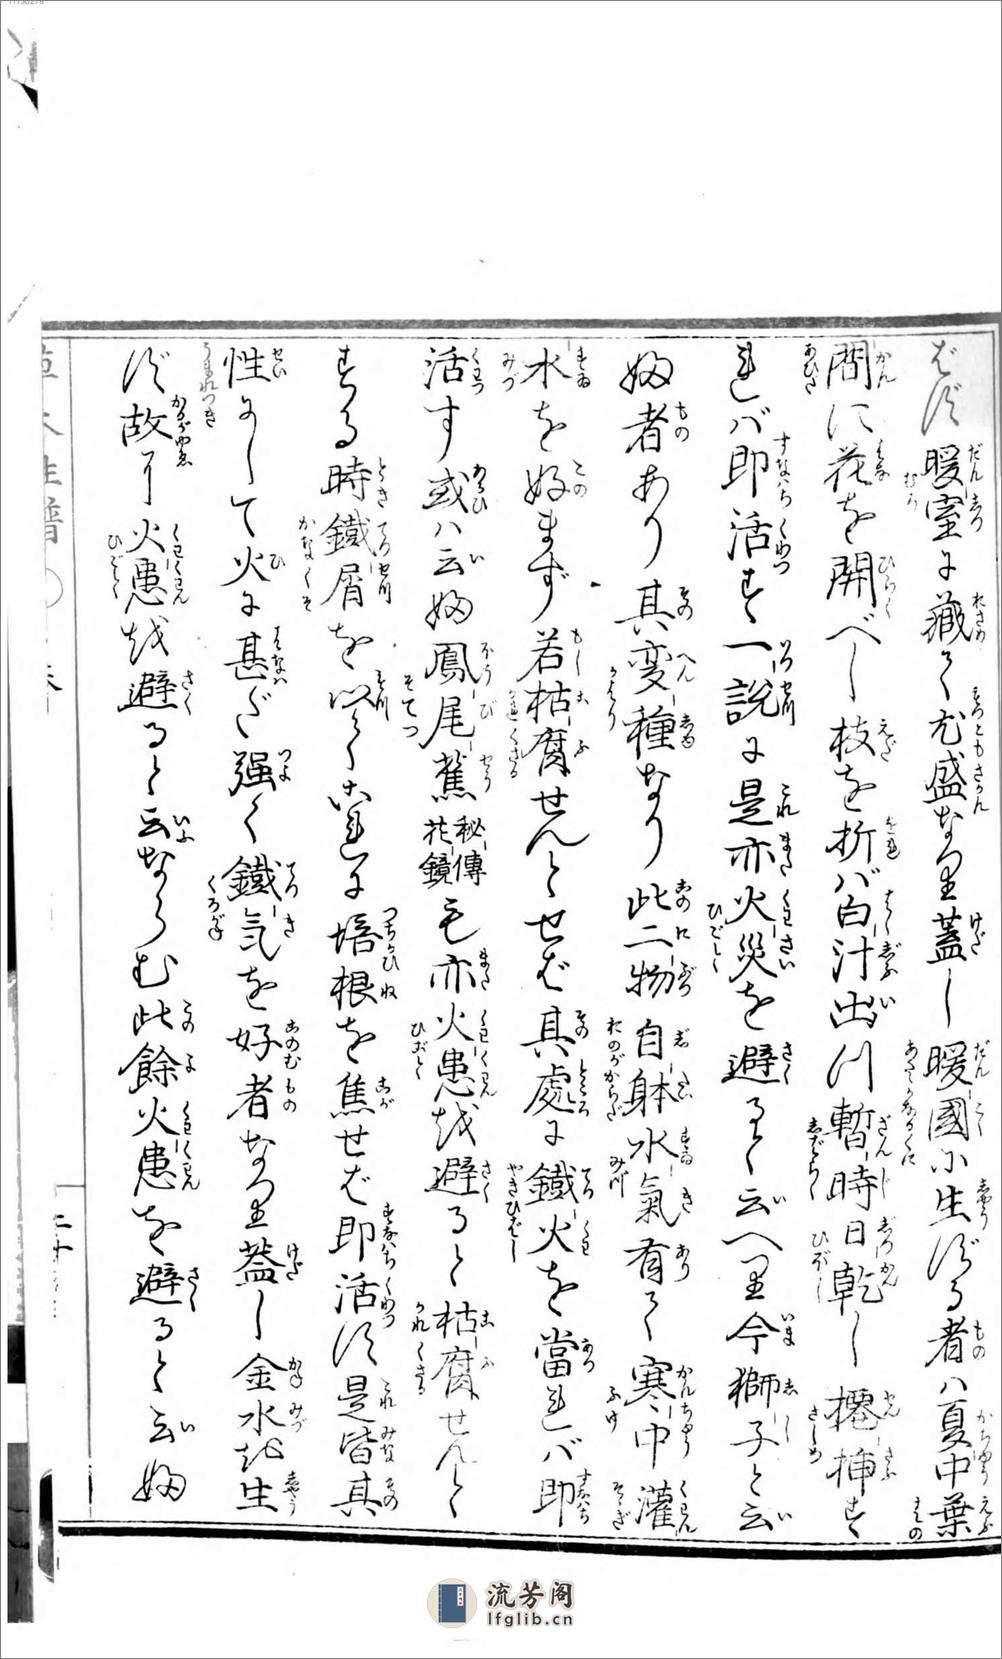 ばず暖室に藏て尤盛なり蓋し暖國に生ずる者ハ夏中葉
間に花を開べし枝を折バ白汁出つ暫時日乾し樒挿す
れバ即活す一説に是亦火災を避ると云へり今獅子と云
者あり其変種なり此二物自躰水氣有て寒中灌
水を好まず若枯腐せんとせば其處に鐵火を當れバ即
活す或ハ云鳳尾蕉秘傳花鏡も亦火患を避ると枯腐せんと
する時鐵屑を以てこれに培根を焦せば即活す是皆其
性にして火に甚だ强く鐵气を好者なり蓋し金水を生
ず故に火患を避ると云ならむ此餘火患を避ると云
二十
流芳阁
lfglib.cn